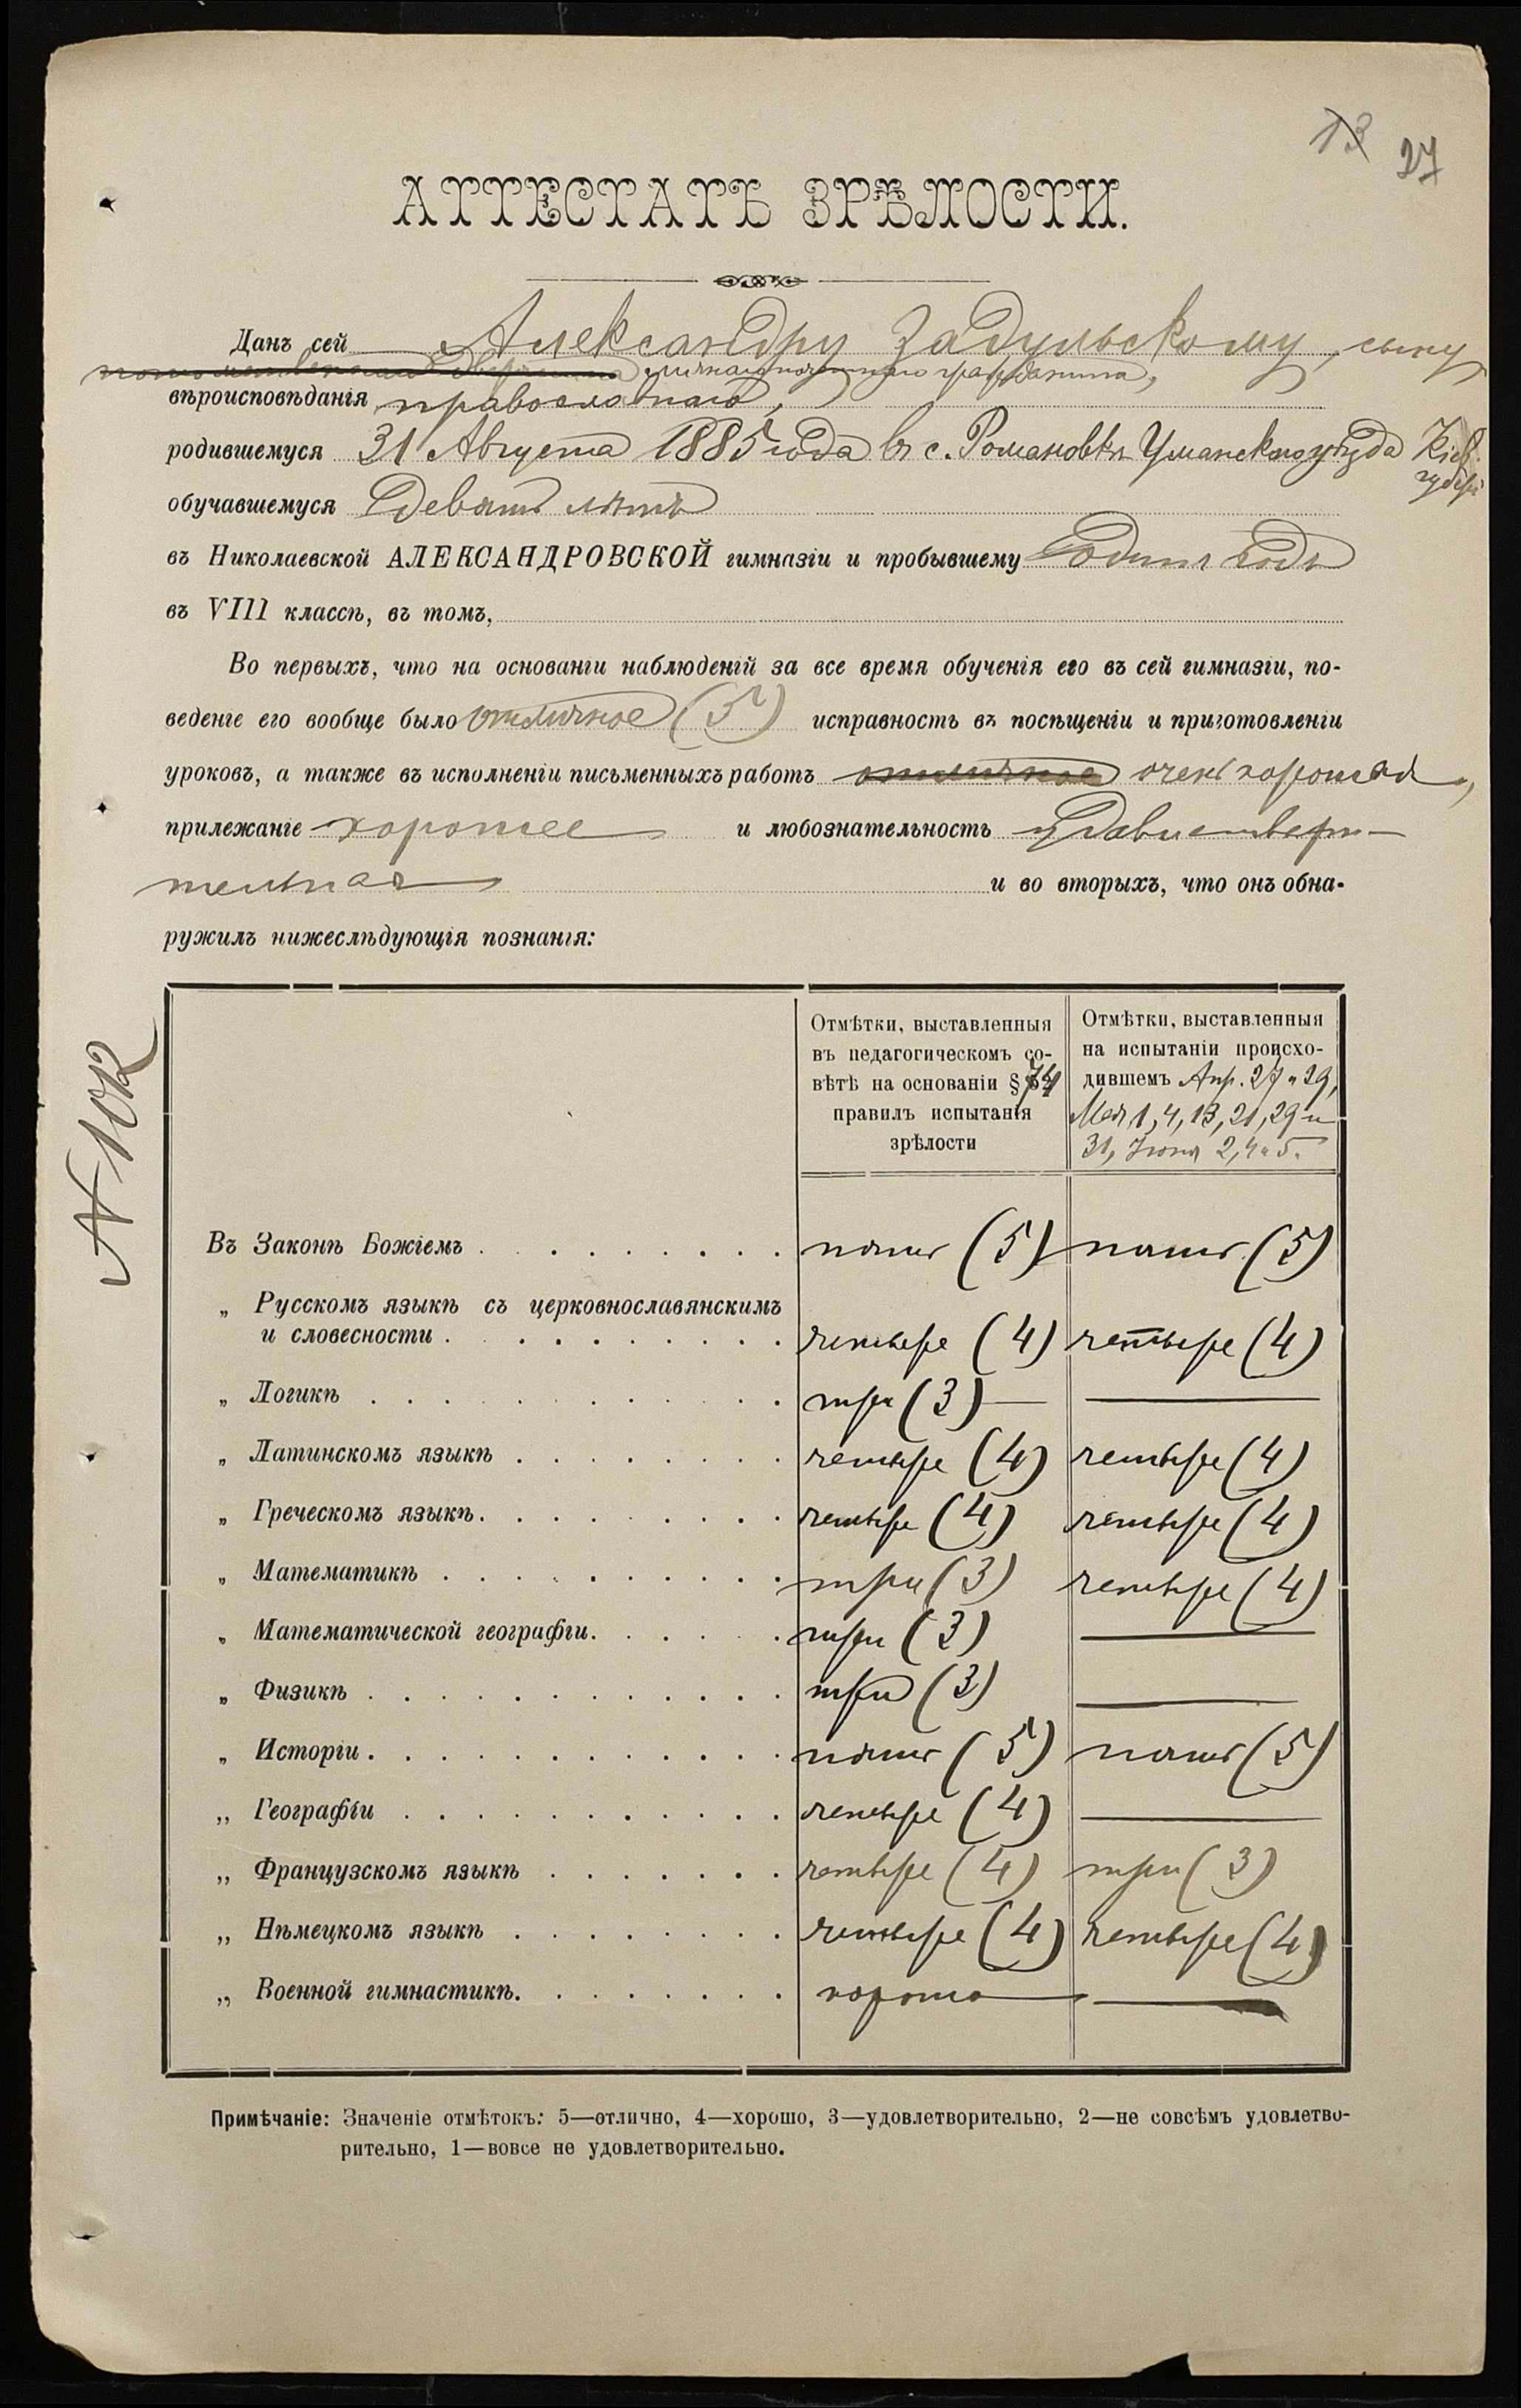 13 27
АТТЕСТАТЪ ЗРѢЛОСТИ.
Данъ сей Александру Задульскому, сыну
потомственнаго дворянина личнаго почетнаго гражданина,
вѣроисповѣданія православнаго,
родившемуся 31 Августа 1885 года въ с. Романовкѣ Уманскаго уѣзда Кіев.
губерн.
обучавшемуся девять лѣтъ
въ Николаевской АЛЕКСАНДРОВСКОЙ гимназіи и пробывшему одинъ годъ
въ VIII классѣ, въ томъ,
Во первыхъ, что на основаніи наблюденій за все время обученія его въ сей гимназіи, по-
веденіе его вообще было отличное (5) исправность въ посѣщеніи и приготовленіи
уроковъ, а также въ исполненіи письменныхъ работъ отличное очень хорошая,
прилежаніе хорошее и любознательность удовлетвори-
тельная и во вторыхъ, что онъ обна-
ружилъ нижеслѣдующія познанія:
№ 1012
Отмѣтки, выставленныя
въ педагогическомъ со-
вѣтѣ на основаніи § 74
правилъ испытанія
зрѣлости
Отмѣтки, выставленныя
на испытаніи происхо-
дившемъ Апр. 27 и 29,
Мая 1, 4, 13, 21, 29 и
31, Іюня 2, 4 и 5.
Въ Законѣ Божіемъ . . . . . . . . . пять (5) пять (5)
„ Русскомъ языкѣ съ церковнославянскимъ
и словесности . . . . . . . . . . четыре (4) четыре (4)
„ Логикѣ . . . . . . . . . . . . три (3) —
„ Латинскомъ языкѣ . . . . . . . . четыре (4) четыре (4)
„ Греческомъ языкѣ. . . . . . . . . четыре (4) четыре (4)
„ Математикѣ . . . . . . . . . . три (3) четыре (4)
„ Математической географіи. . . . . . три (3) —
„ Физикѣ . . . . . . . . . . . . три (3) —
„ Исторіи . . . . . . . . . . . . пять (5) пять (5)
„ Географіи . . . . . . . . . . . четыре (4) —
„ Французскомъ языкѣ . . . . . . . четыре (4) три (3)
„ Нѣмецкомъ языкѣ . . . . . . . . четыре (4) четыре (4)
„ Военной гимнастикѣ. . . . . . . . хорошо —
Примѣчаніе: Значеніе отмѣтокъ: 5—отлично, 4—хорошо, 3—удовлетворительно, 2—не совсѣмъ удовлетво-
рительно, 1—вовсе не удовлетворительно.